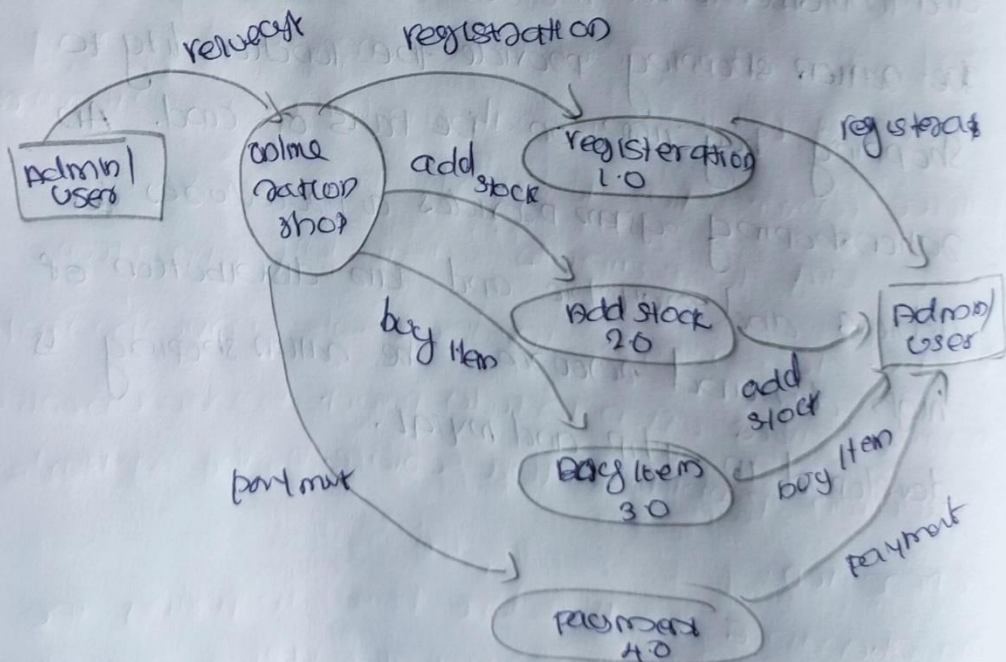 request
registration
Admin/
User
online
ration
shop
add
stock
registeration
1.0
registeras
buy item
Add stock
2.0
Admin/
user
add
stock
payment
Buy item
3.0
buy item
payment
payment
4.0